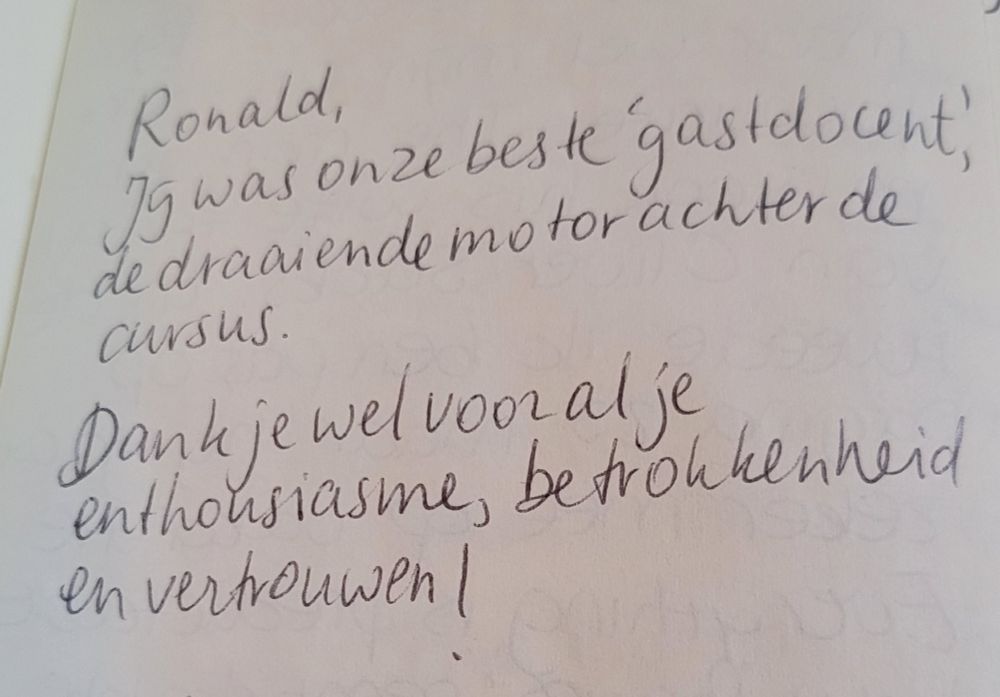 Ronald,
Jij was onze beste 'gastdocent',
de draaiende motor achter de
cursus.
Dank je wel voor al je
enthousiasme, betrokkenheid
en vertrouwen!